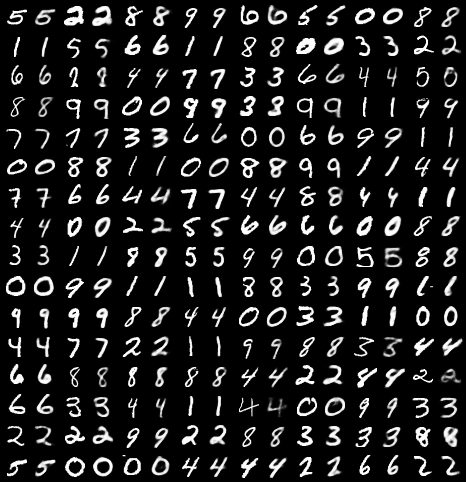 5 5 2 2 8 8 9 9 6 6 5 5 0 0 8 8
1 1 5 5 6 6 1 1 8 8 0 0 3 3 2 2
6 6 4 4 7 7 3 3 6 6 4 4 5 5
8 8 9 9 0 0 9 9 3 3 9 9 1 1 9 9
7 7 7 7 3 3 6 6 0 0 6 6 9 9 1 1
0 0 8 8 1 1 0 0 8 8 9 9 1 1 4 4
7 7 6 6 4 4 7 7 4 4 8 8 4 4 1 1
4 4 0 0 2 2 5 5 6 6 6 6 0 0 8 8
3 3 1 1 8 8 5 5 9 9 0 0 5 5 8 8
0 0 9 9 1 1 1 1 8 8 3 3 9 9 1 1
9 9 9 9 8 8 4 4 0 0 3 3 1 1 0 0
4 4 7 7 2 2 1 1 9 9 8 8 3 3 4 4
6 6 8 8 8 8 8 8 4 4 2 2 8 4 2 2
6 6 3 3 4 4 1 1 4 4 0 0 9 9 3 3
2 2 2 2 9 9 2 2 8 8 3 3 3 3 8 8
5 5 0 0 0 0 4 4 4 4 6 6 2 2